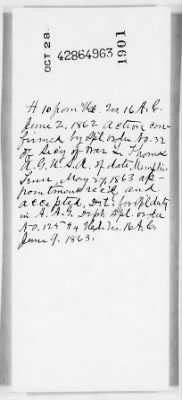 OCT 28.
42864963
1901
H 10 from Hd. 2 16 A.C.
June 2, 1862 action con-
firmed by Spl order No. 32
of Secy of War L. Thomas
A.G. U.S.A. of date, Memphis
Tenn, May 27, 1863 ap-
pointment recd, and
accepted, Det. for Spl duty
in A.A.G. Dept. Spl. order
No. 125 Hd. 16 A.C.
June 9. 1863.